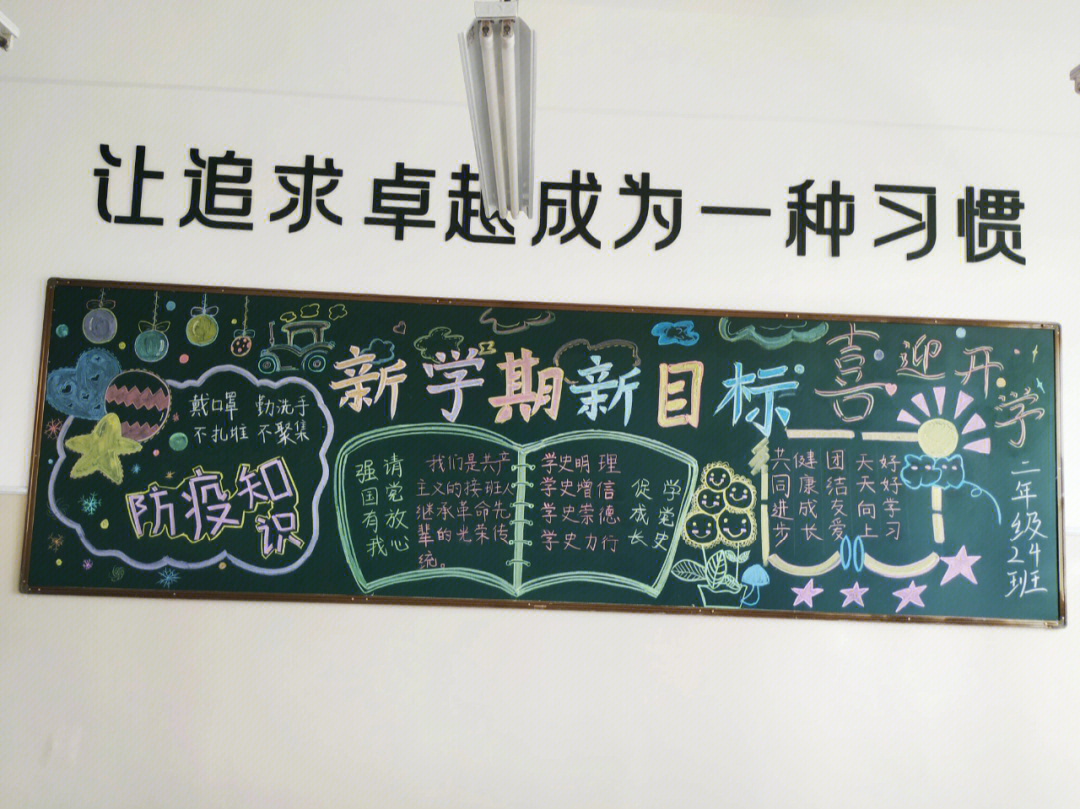 让追求卓越成为一种习惯
新学期新目标
喜迎开学
戴口罩 勤洗手
不扎堆 不聚集
防疫知识
请党放心
强国有我
我们是共产
主义的接班人
继承革命先
辈的光荣传
统。
学史明理
学史增信
学史崇德
学史力行
学党史
促成长
好好学习
天天向上
团结友爱
健康成长
共同进步
二年级24班